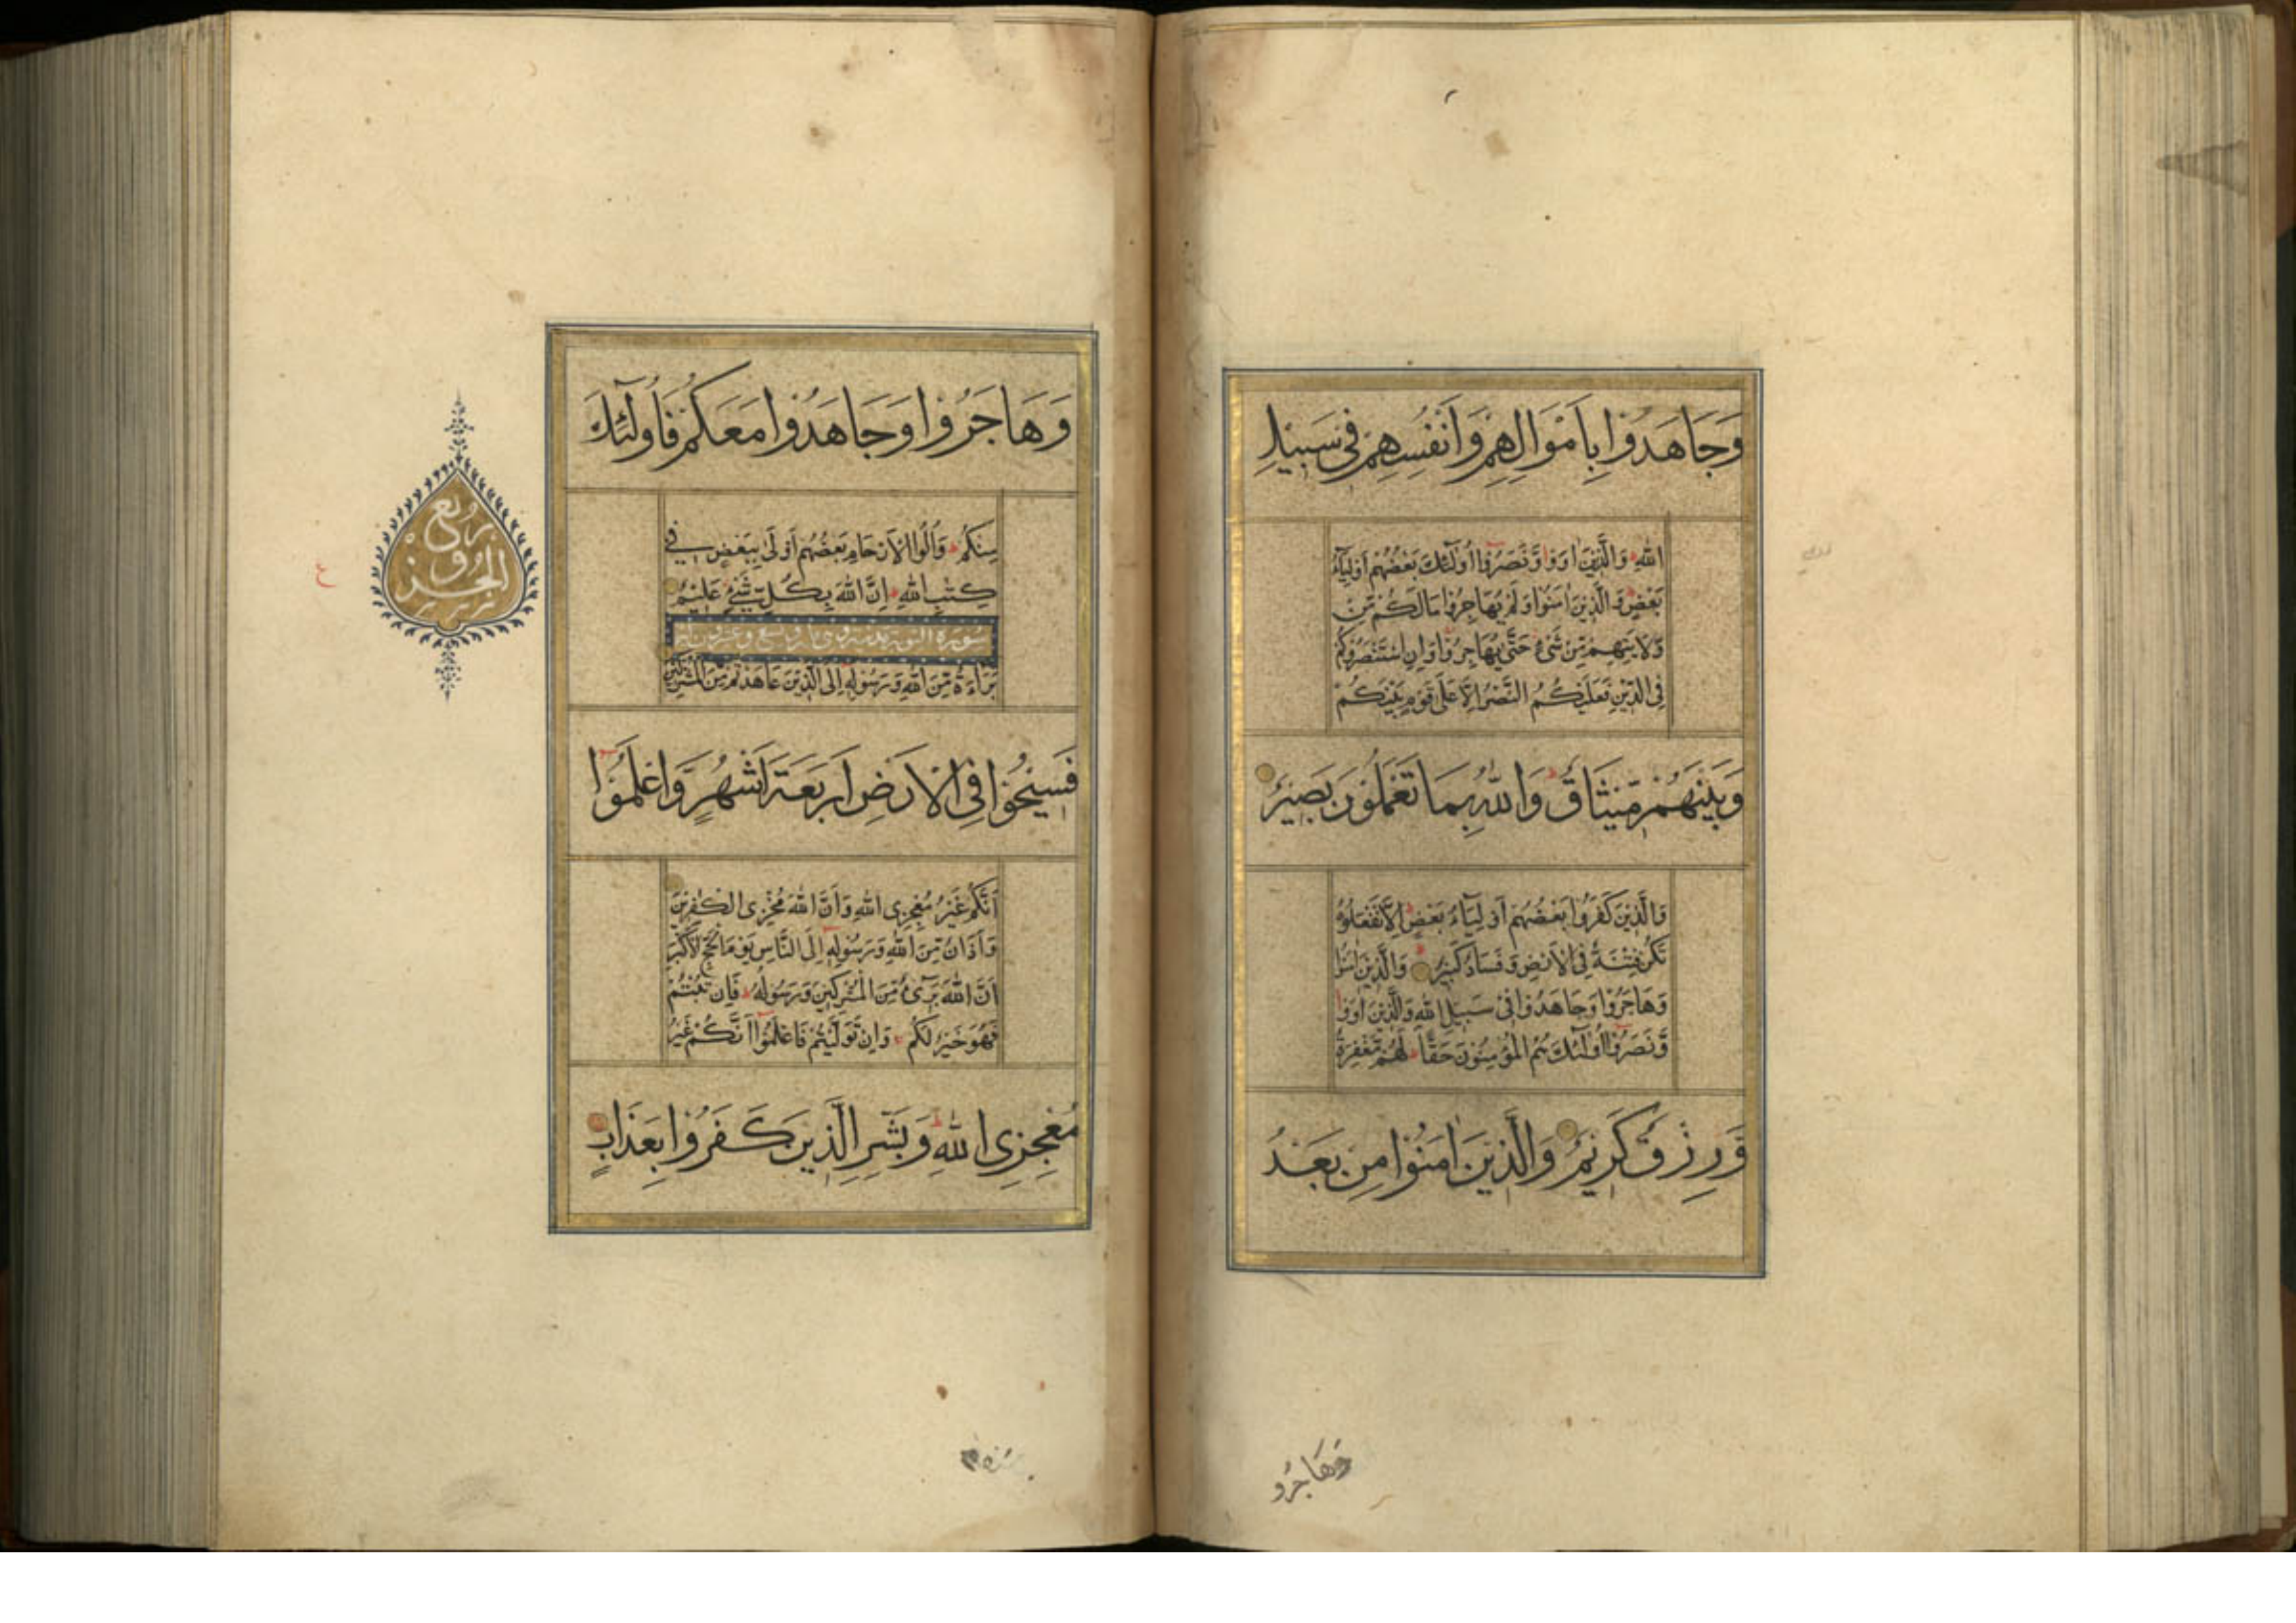 وَجَاهَدُوا بِاَمْوَالِهِمْ وَاَنْفُسِهِمْ فِى سَبِيلِ
اللّٰهِ وَالَّذِينَ اٰوَوْا وَّنَصَرُوْا اُولٰٓئِكَ بَعْضُهُمْ اَوْلِيَآءُ
بَعْضٍ وَالَّذِينَ اٰمَنُوا وَلَمْ يُهَاجِرُوْا مَا لَكُمْ مِّنْ
وَّلَايَتِهِمْ مِّنْ شَىْءٍ حَتّٰى يُهَاجِرُوْا وَاِنِ اسْتَنْصَرُوْكُمْ
فِى الدِّيْنِ فَعَلَيْكُمُ النَّصْرُ اِلَّا عَلٰى قَوْمٍ بَيْنَكُمْ
وَبَيْنَهُمْ مِّيْثَاقٌ وَاللّٰهُ بِمَا تَعْمَلُوْنَ بَصِيْرٌ
وَالَّذِيْنَ كَفَرُوْا بَعْضُهُمْ اَوْلِيَآءُ بَعْضٍ اِلَّا تَفْعَلُوْهُ
تَكُنْ فِتْنَةٌ فِى الْاَرْضِ وَفَسَادٌ كَبِيْرٌ وَالَّذِيْنَ اٰمَنُوْا
وَهَاجَرُوْا وَجَاهَدُوْا فِىْ سَبِيْلِ اللّٰهِ وَالَّذِيْنَ اٰوَوْا
وَّنَصَرُوْا اُولٰٓئِكَ هُمُ الْمُؤْمِنُوْنَ حَقًّا لَهُمْ مَّغْفِرَةٌ
وَّرِزْقٌ كَرِيْمٌ وَالَّذِيْنَ اٰمَنُوْا مِنْ بَعْدُ
وَهَاجَرُو
وَهَاجَرُوْا وَجَاهَدُوْا مَعَكُمْ فَاُولٰٓئِكَ
مِنْكُمْ وَاُولُوا الْاَرْحَامِ بَعْضُهُمْ اَوْلٰى بِبَعْضٍ فِى
كِتٰبِ اللّٰهِ اِنَّ اللّٰهَ بِكُلِّ شَىْءٍ عَلِيْمٌ
سورة التوبة مدنية وهى مائة وتسع وعشرون اية
بَرَآءَةٌ مِّنَ اللّٰهِ وَرَسُوْلِهٖ اِلَى الَّذِيْنَ عَاهَدْتُمْ مِّنَ الْمُشْرِكِيْنَ
فَسِيْحُوْا فِى الْاَرْضِ اَرْبَعَةَ اَشْهُرٍ وَّاعْلَمُوْٓا
اَنَّكُمْ غَيْرُ مُعْجِزِى اللّٰهِ وَاَنَّ اللّٰهَ مُخْزِى الْكٰفِرِيْنَ
وَاَذَانٌ مِّنَ اللّٰهِ وَرَسُوْلِهٖٓ اِلَى النَّاسِ يَوْمَ الْحَجِّ الْاَكْبَرِ
اَنَّ اللّٰهَ بَرِىْٓءٌ مِّنَ الْمُشْرِكِيْنَ وَرَسُوْلُهٗ فَاِنْ تُبْتُمْ
فَهُوَ خَيْرٌ لَكُمْ وَاِنْ تَوَلَّيْتُمْ فَاعْلَمُوْٓا اَنَّكُمْ غَيْرُ
مُعْجِزِى اللّٰهِ وَبَشِّرِ الَّذِيْنَ كَفَرُوْا بِعَذَابٍ
رُبع
الجُزو
ع